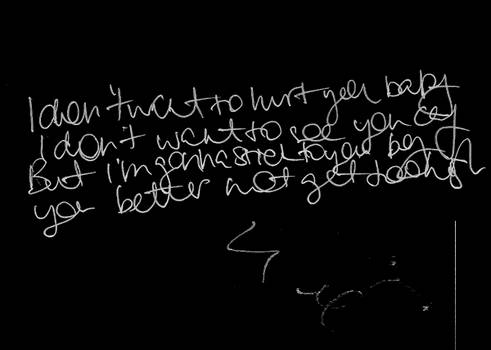 I don't want to hurt you baby
I don't want to see you cry
But I'm gonna stick to you boy
you better not get